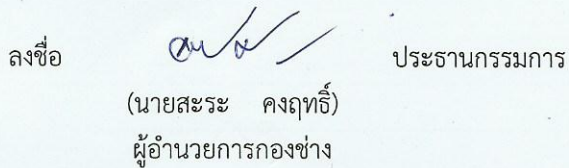 ลงชื่อ ประธานกรรมการ
(นายสะระ คงฤทธิ์)
ผู้อำนวยการกองช่าง